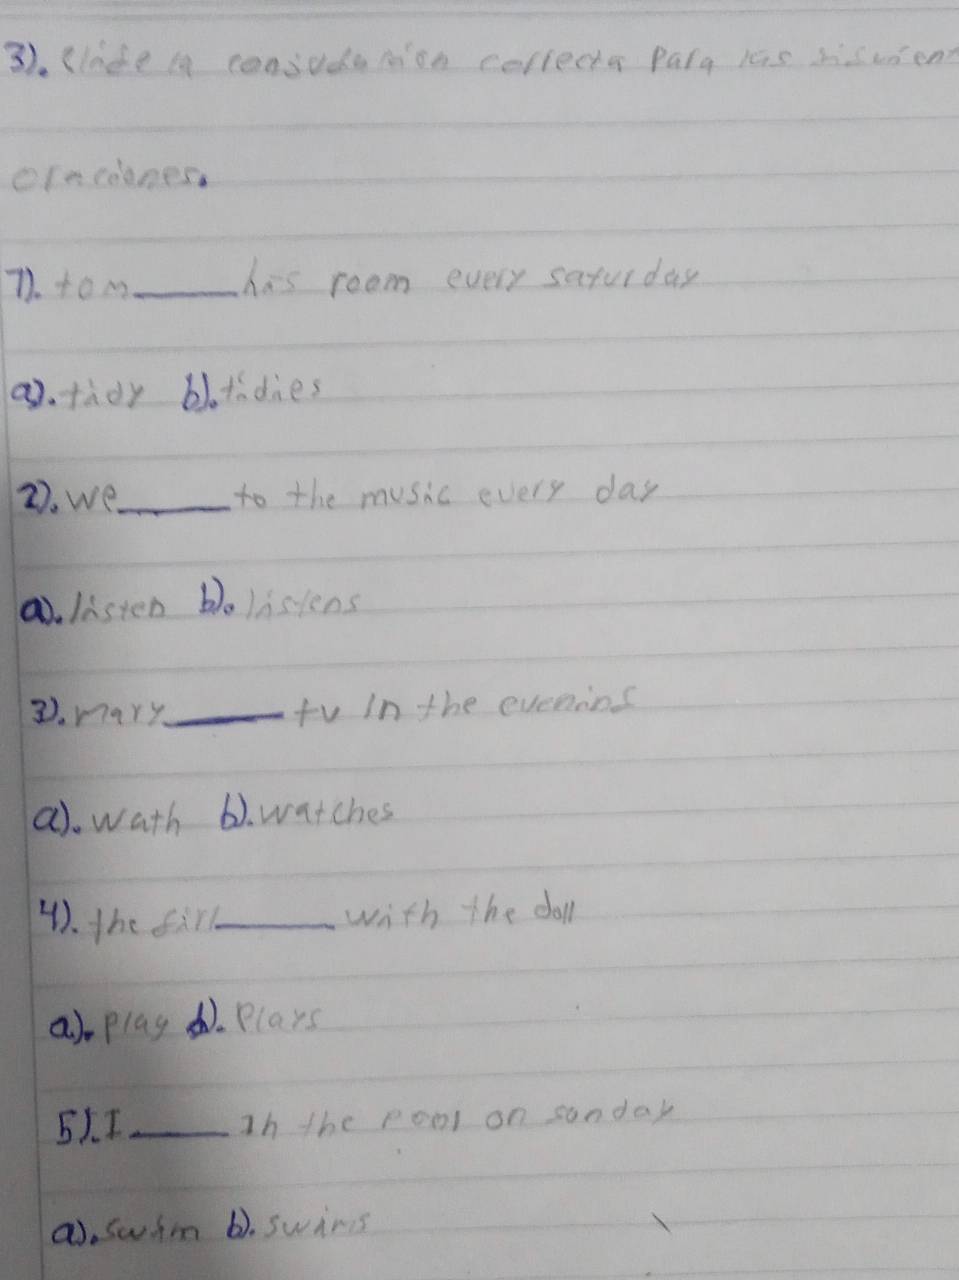 3). Elide la consudación correcta para las siguient
oraciones.
1). tom_____ his room every saturday
a). tidy b). tidies
2). we_____ to the music every day
a). listen b). listens
3). mary_____ tv in the evening
a). wath b). watches
4). the girl_____ with the doll
a). play b). plays
5). I_____ in the pool on sonday
a). swim b). swims